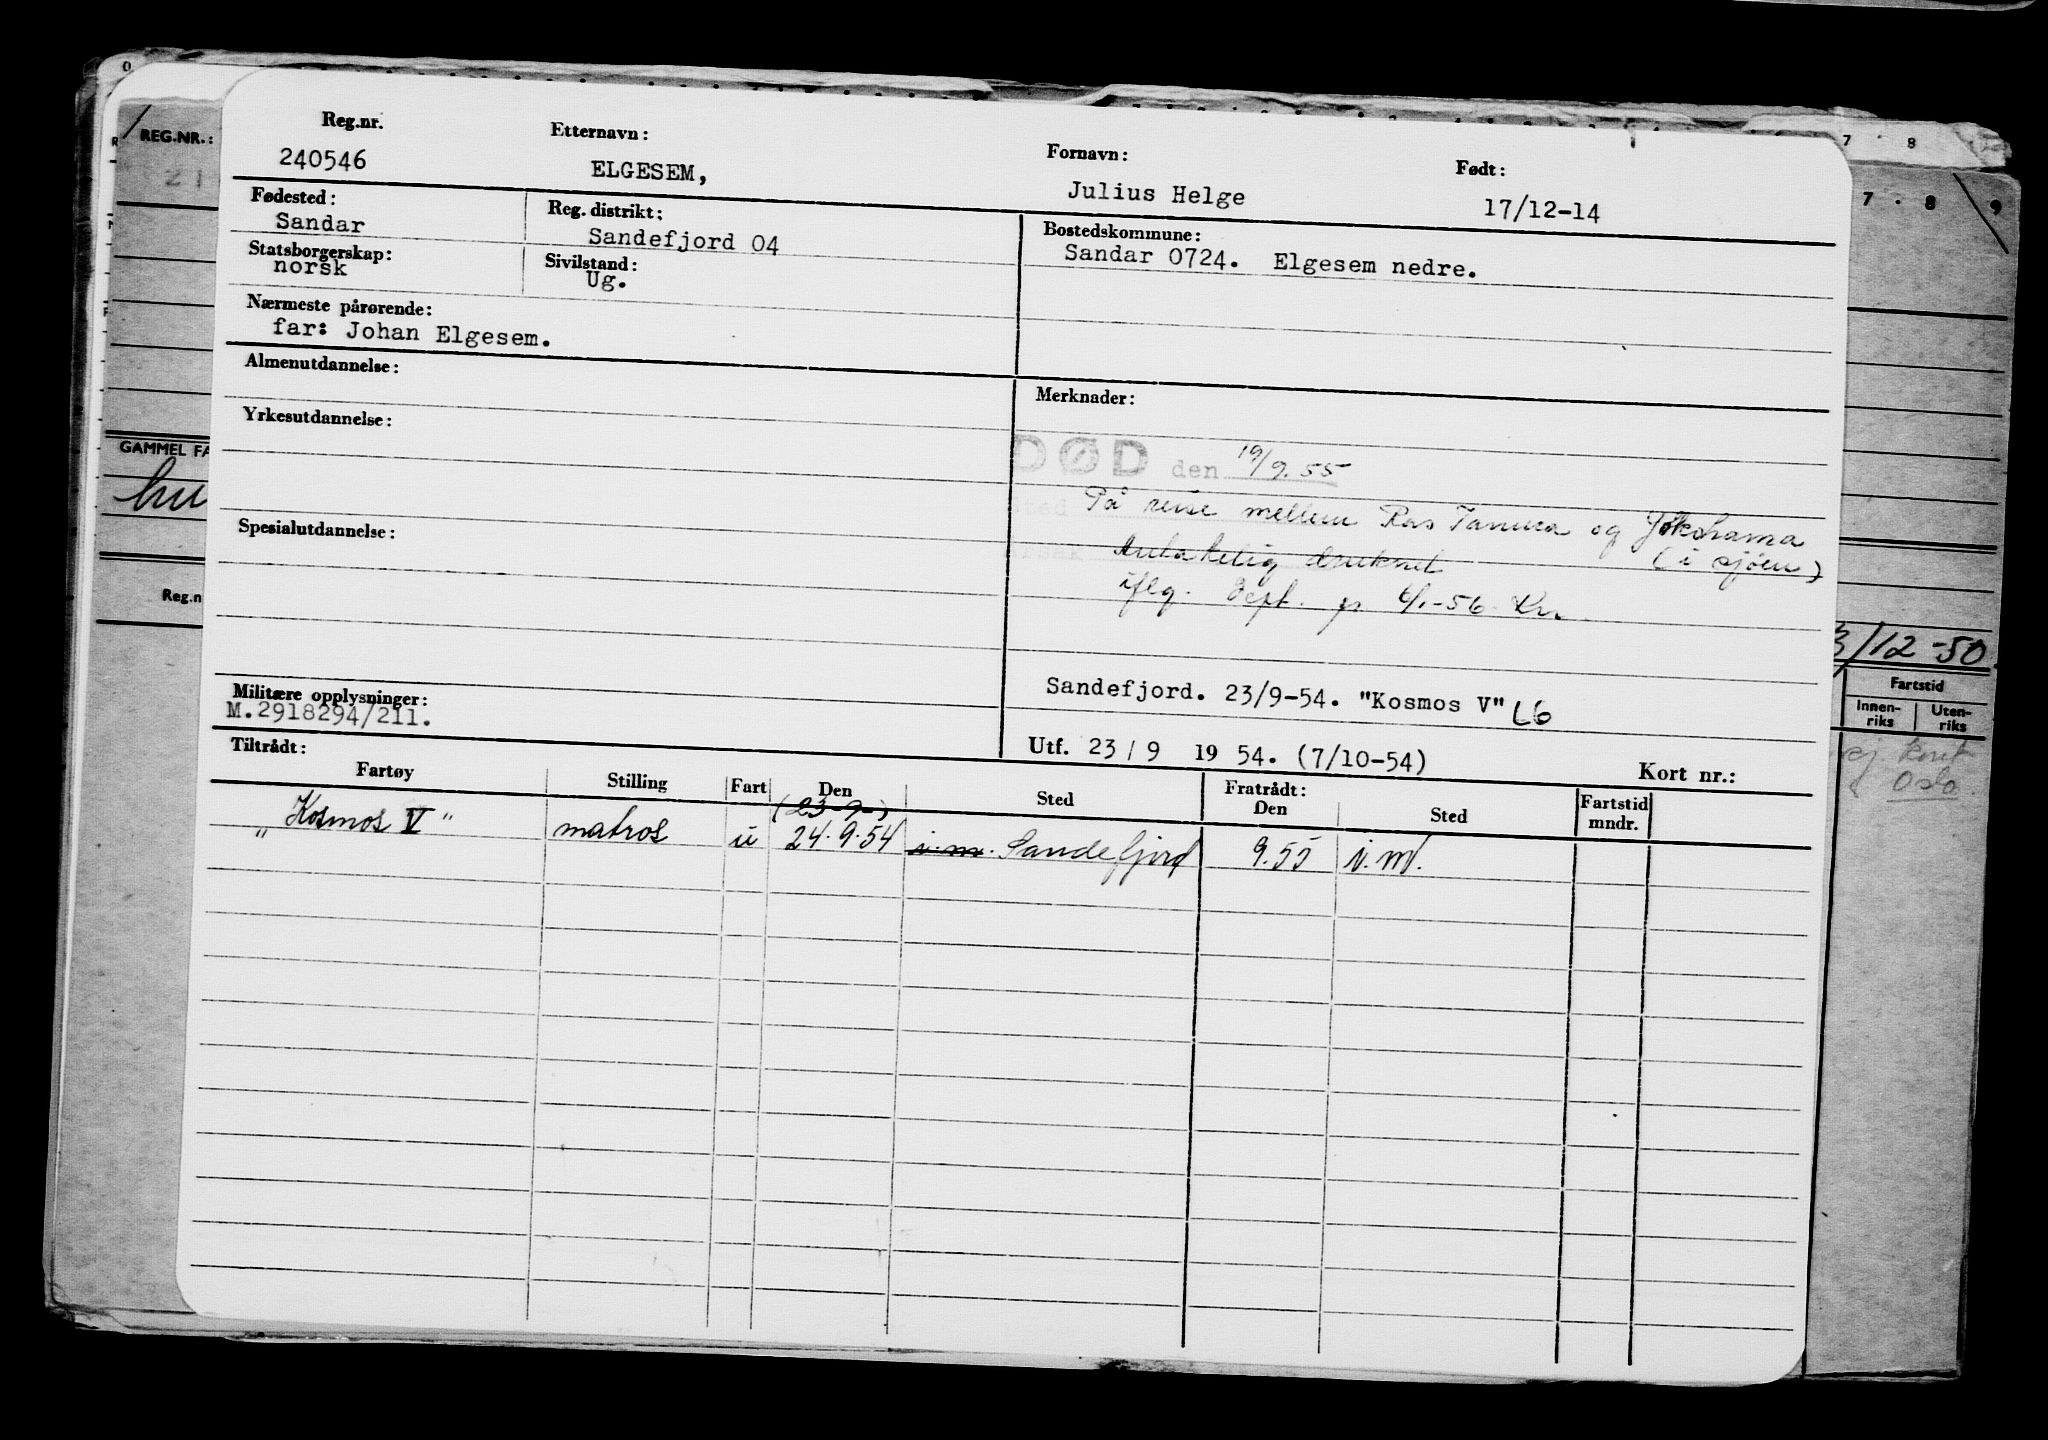 REG.NR.:
Reg.nr. Etternavn: Fornavn: Født:
240546 ELGESEM, Julius Helge 17/12-14
Fødested: Reg. distrikt: Bostedskommune:
Sandar Sandefjord 04 Sandar 0724. Elgesem nedre.
Statsborgerskap: Sivilstand:
norsk Ug.
Nærmeste pårørende:
far: Johan Elgesem.
Almenutdannelse:
Merknader:
Yrkesutdannelse:
DØD den 19/9.55
På reise mellem Ras Tanura og Yokohama
Spesialutdannelse:
druknet (i sjøen)
iflg. Dept. 6/1-56. Kr.
Militære opplysninger:
M.2918294/211.
Sandefjord. 23/9-54. "Kosmos V" L6
Utf. 23/9 1954. (7/10-54) Kort nr.:
Tiltrådt: Fratrådt:
Fartøy Stilling Fart Den Sted Den Sted Fartstid mndr.
(23-9-)
"Kosmos V" matros u 24.9.54 i.m. Sandefjord 9.55 i.M.
GAMMEL FA
hu
Reg.n
7 . 8
7 . 8 9
3/12-50
Fartstid
Innen-riks Uten-riks
Oslo